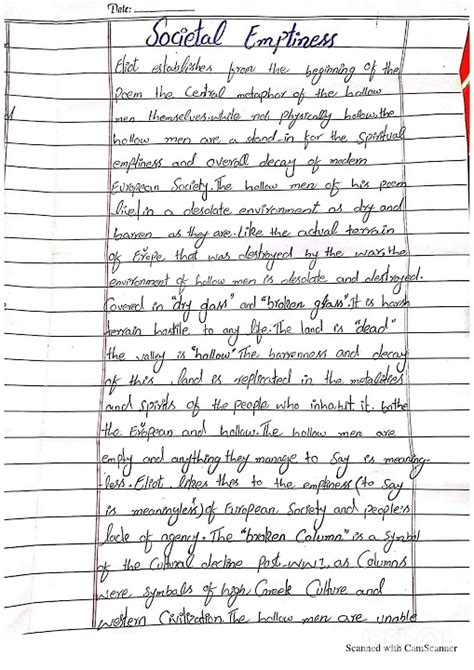 Date:
Societal Emptiness
Eliot establishes from the beginning of the
Poem the Central metaphor of the hollow
men themselves.while not Physically hollow.the
hollow men are a stand-in for the Spiritual
emptiness and overall decay of modern
European Society.The hollow men of his poem
live in a desolate environment as dry and
barren as they are.Like the actual terrain
of Erope that was destroyed by the war,the
environment of hollow men is desolate and destroyed.
Covered in "dry glass" and "broken glass".It is harsh
terrain hostile to any life.The land is "dead"
the valley is "hollow".The barrenness and decay
of this land is replicated in the metalities
and spirits of the people who inhabit it. bothe
the Eropean and hollow.The hollow men are
empty and anything they manage to Say is meaning-
less. Eliot likes thes to the emptiness (to Say
is meaningless) of European Society and people's
lack of agency. The "broken Column" is a Symbol
of the Cultural decline Post-WWI, as Columns
were symbols of high Greek Culture and
western Civilization.The hollow men are unable
Scanned with CamScanner